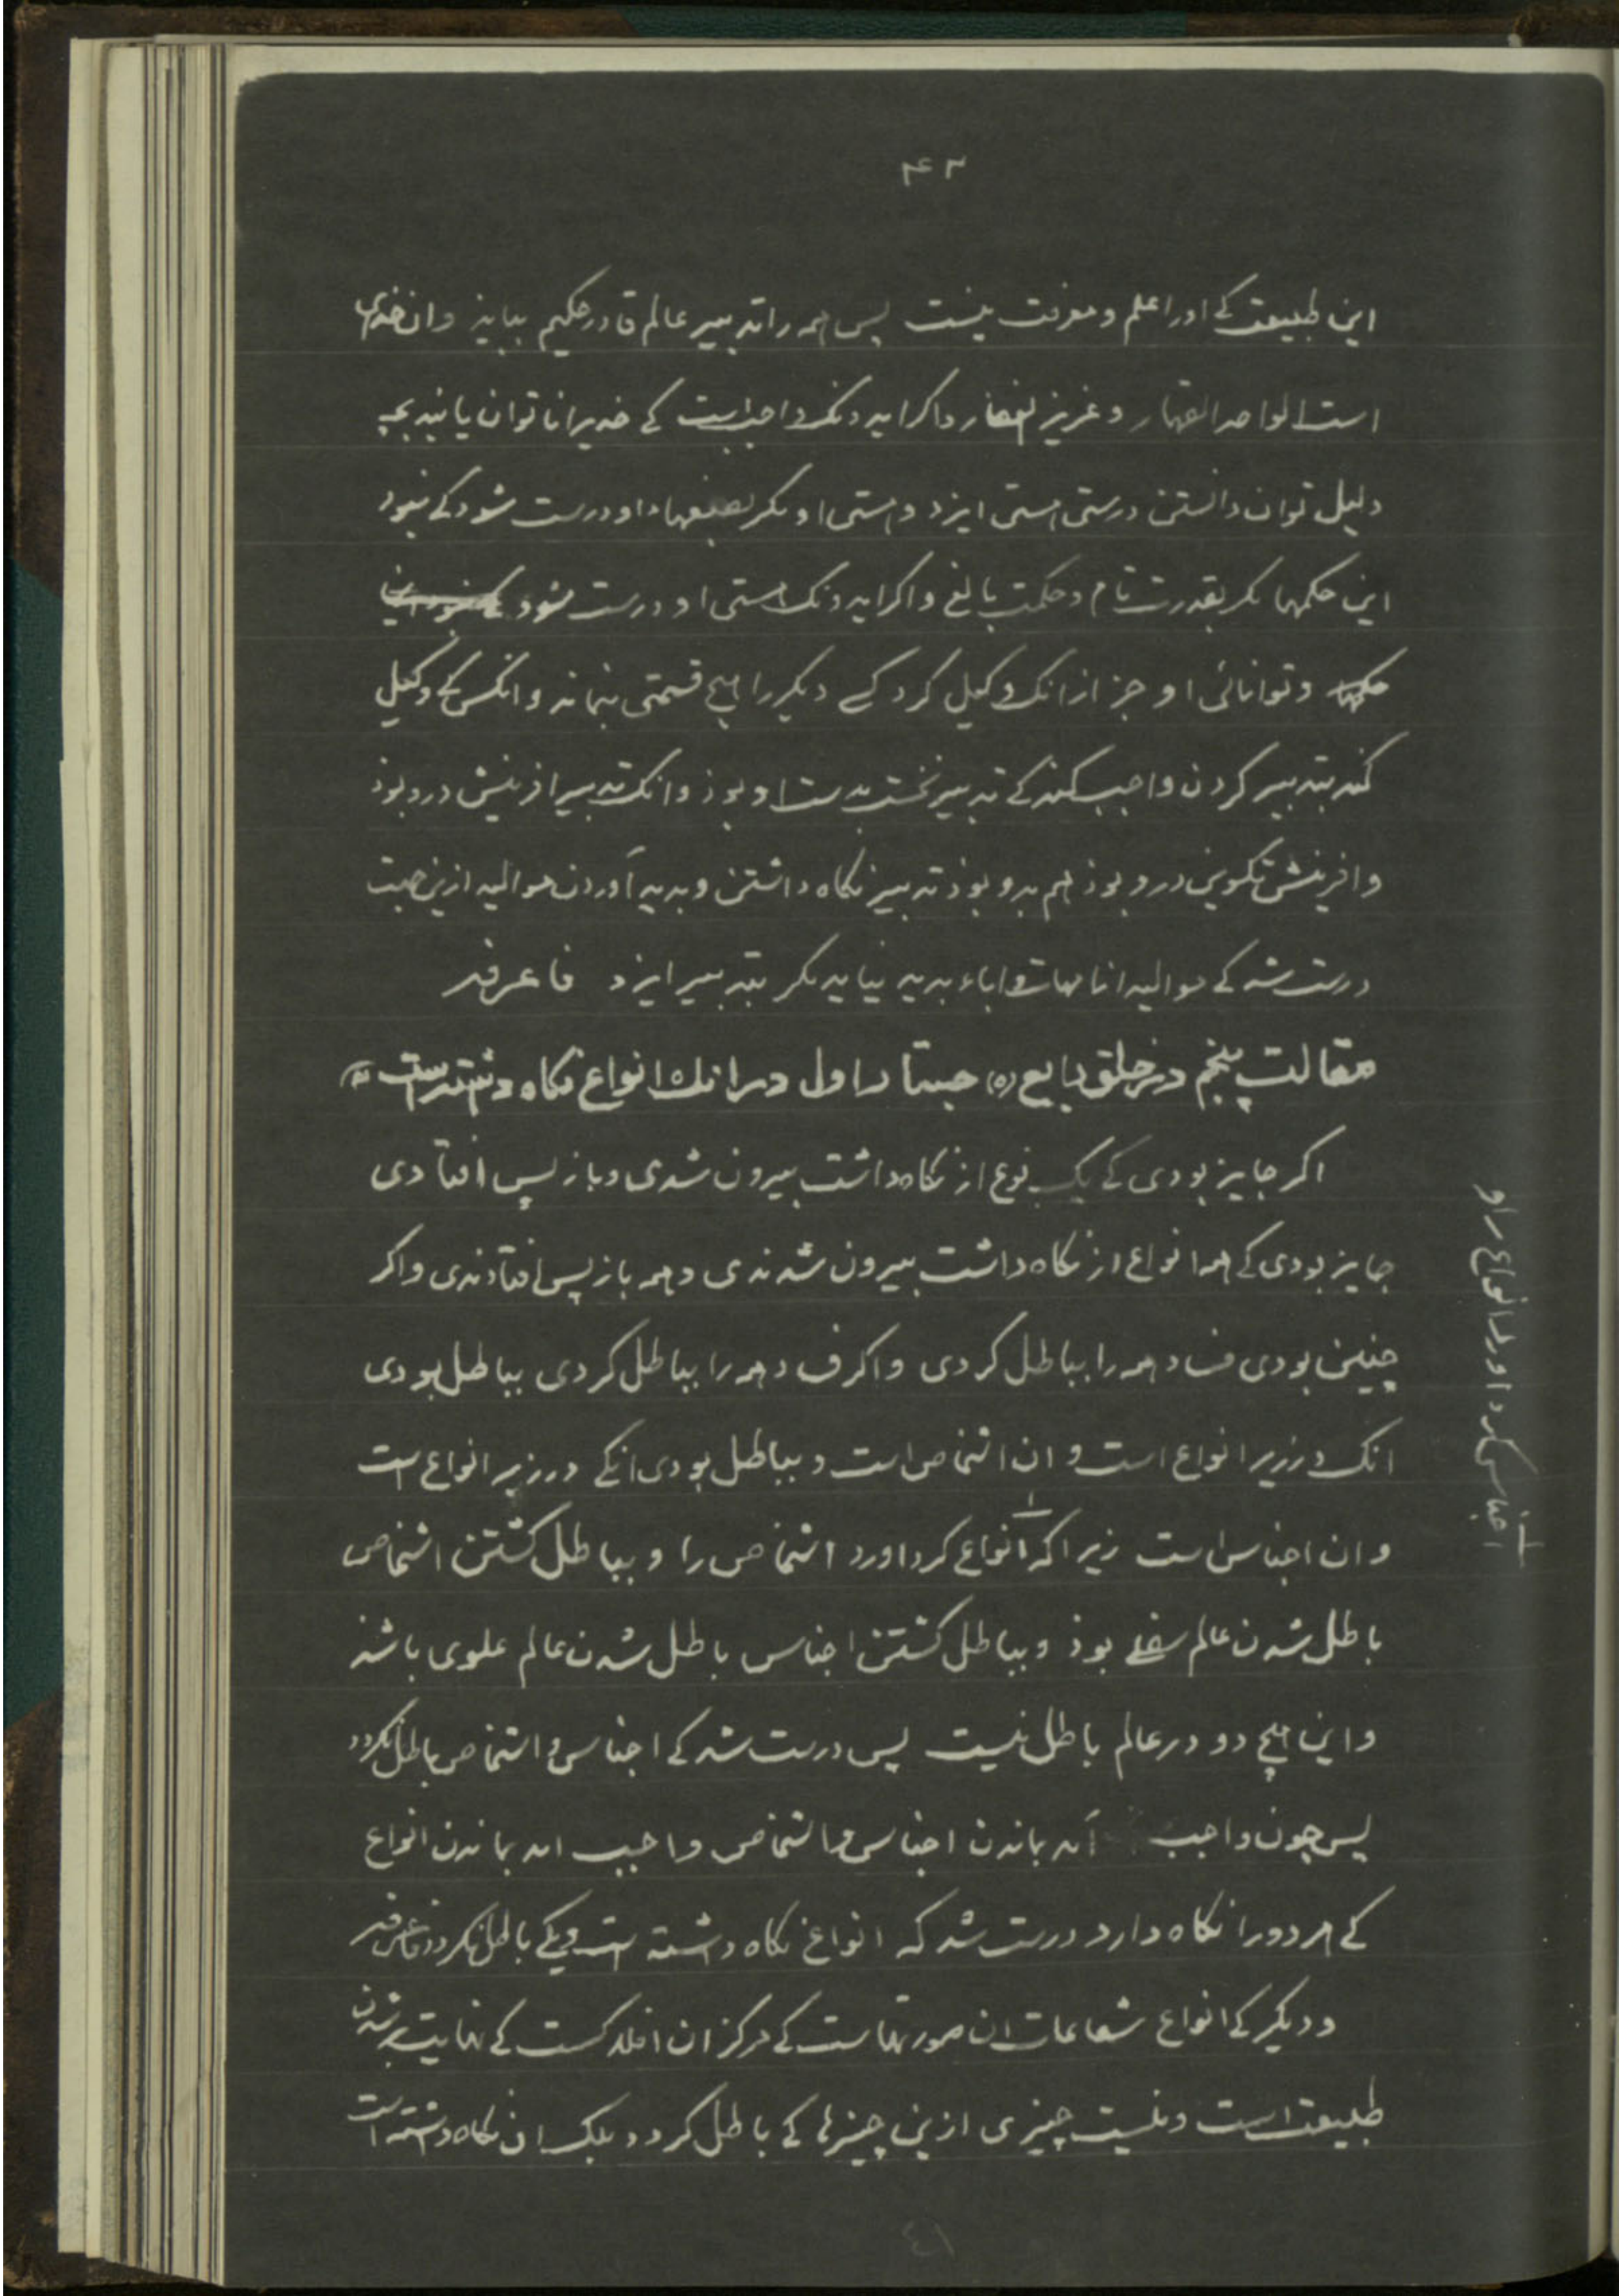 ۴۳
این طبیعت کے اورا علم و معرفت نیست پس همه را تدبیر عالم قادر حکیم بباید وان خدای
است الواحد القهار و عزیز الغفار و اکر ایدونک واجبست کے خدیرا ناتوان یابند بچه
دلیل توان دانستن درستی هستی ایزد و هستی او مکر بصنعهاء او درست شود کے نبود
این حکمها مکر بقدرت تام و حکمت بالغ و اکر ایدونک هستی او درست شود کے نبود این
حکمها و توانائی او جز از انک وکیل کرد کے دیکر را هیچ قسمتی بنماند و انکس کے وکیل
کند بتدبیر کردن واجب کند کے تدبیر نخست بدست او بوذ و انک تدبیر افرینش درو بوذ
و افرینش تکوین درو بوذ هم بدو بوذ تدبیر نکاه داشتن و بدید آوردن موالید ازین جهت
درست شد کے موالید از امهات و اباء بدید نیاید مکر بتدبیر ایزد فاعرفه
مقالت پنجم در خلق بایع (ه) جستار اول در انك انواع نكاه داشته است
اکر جایز بودی کے یک نوع از نکاه داشت بیرون شدی و باز پس افتادی
جایز بودی کے همه انواع از نکاه داشت بیرون شدندی و همه باز پس افتادندی و اکر
چنین بودی فساد همه را بباطل کردی و اکر فساد همه را بباطل کردی بباطل بودی
انک در زیر انواع است و ان اشخاص است و بباطل بودی انکے در زبر انواع است
و ان اجناس است زیرا که انواع کرد اورد اشخاص را و بباطل کشتن اشخاص
باطل شدن عالم سفلے بوذ و بباطل کشتن اجناس باطل شدن عالم علوی باشذ
و این هیچ دو در عالم باطل نیست پس درست شد کے اجناس و اشخاص باطل نکردد
پس چون واجب آمد بماندن اجناس و اشخاص واجب امد بماندن انواع
کے هر دو را نکاه دارد درست شد که انواع نکاه داشته است و یکے باطل نکردد فاعرفه
و دیکر کے انواع شعاعات ان صورتهاست کے مرکز ان افلاکست کے نهایت برشدن
طبیعت است و نیست چیزی ازین چیزها کے باطل کردد بلک ان نکاه داشته است
اجناس کرد اورد انواع را و